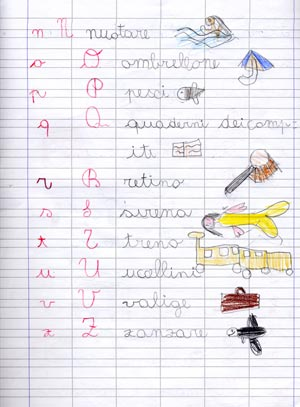 n N nuotare
o O ombrellone
p P pesci
q Q quaderni dei comp-
iti
r R retino
s S sirena
t T treno
u U uccellini
v V valige
z Z zanzare